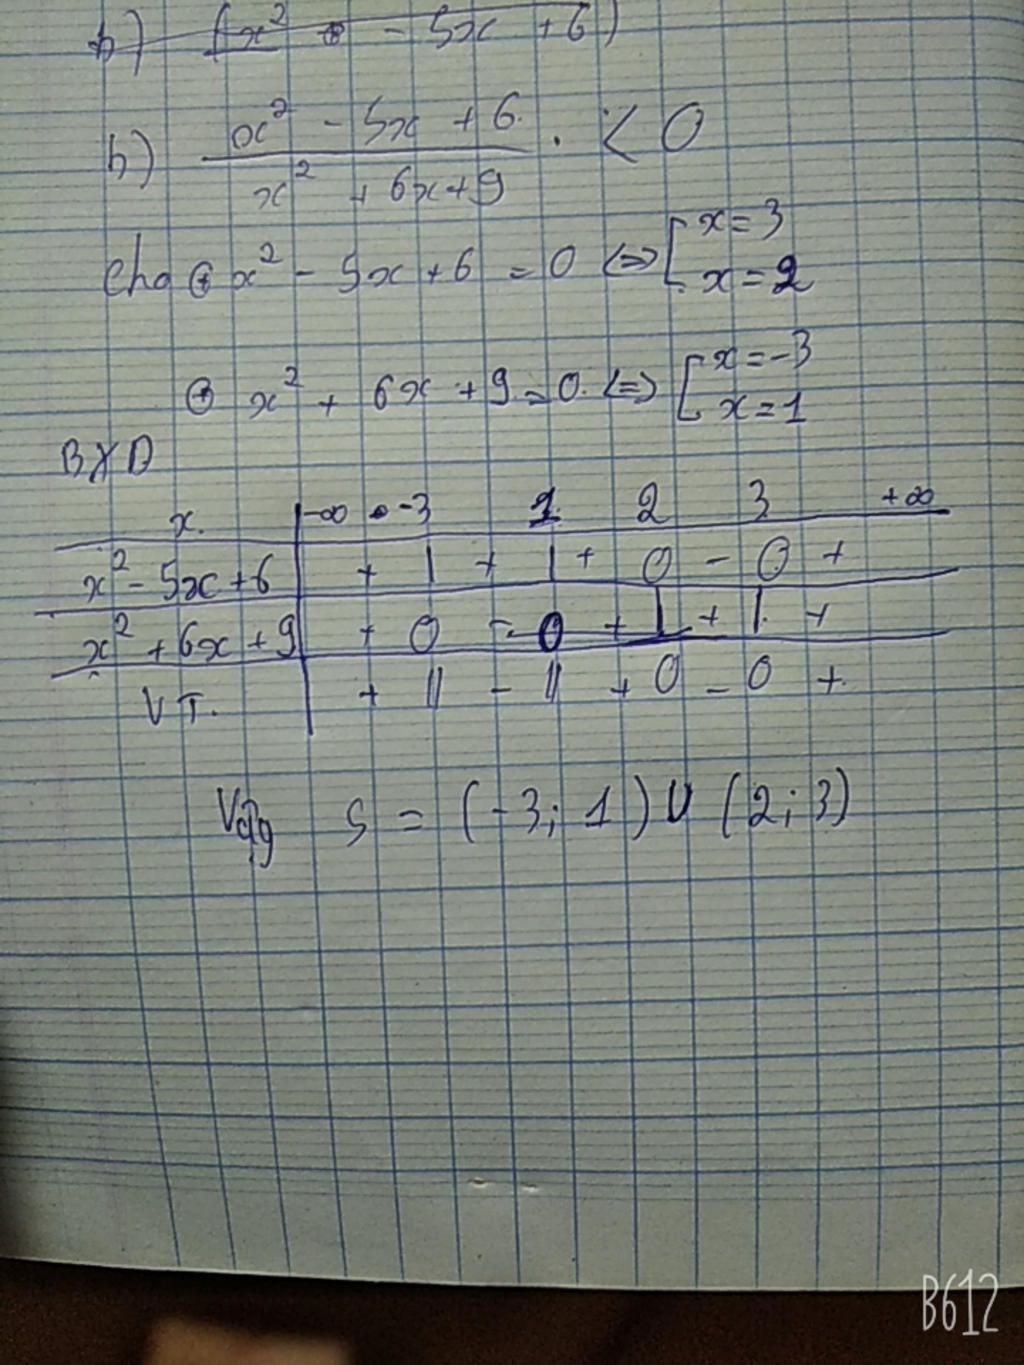 b) (x² - 5x + 6)
b) \frac{x² - 5x + 6}{x² + 6x + 9} . < 0
Cho ⊕ x² - 5x + 6 = 0 <=> [ x = 3
x = 2
⊕ x² + 6x + 9 = 0. <=> [ x = -3
x = 1
BXD
x. | -∞ -3 1 2 3 +∞
x² - 5x + 6 | + | + | + 0 - 0 +
x² + 6x + 9 | + 0 - 0 + | + | +
VT. | + || - || + 0 - 0 +.
Vậy S = (-3; 1) U (2; 3)
B612